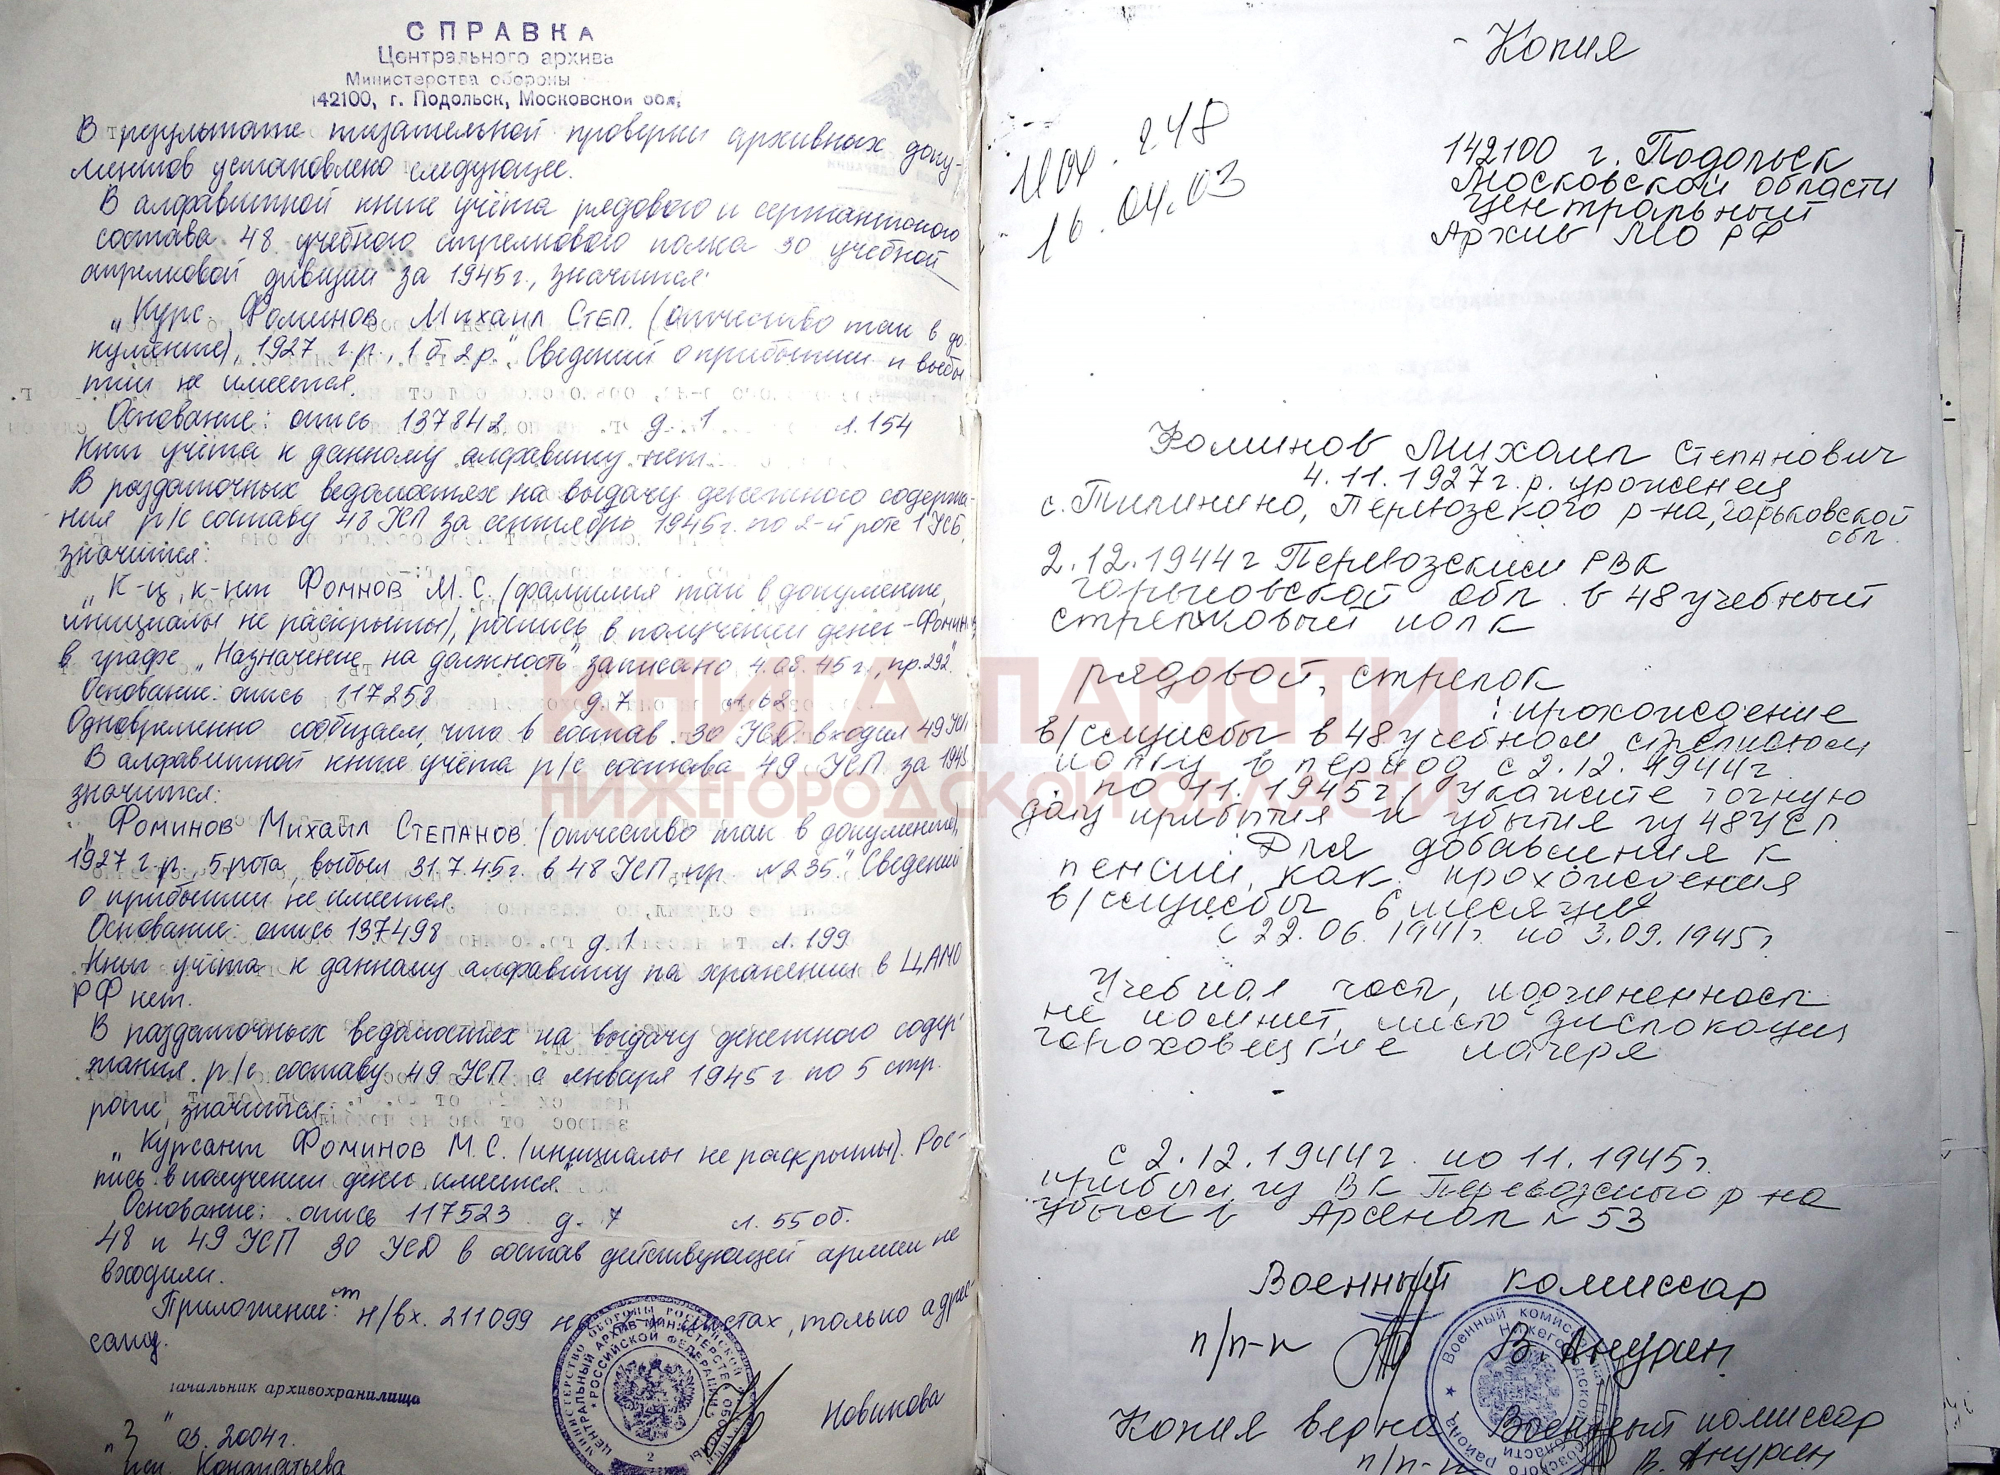 СПРАВКА
Центрального архива
Министерства обороны
142100, г. Подольск, Московской обл.
В результате тщательной проверки архивных доку-
ментов установлено следующее.
В алфавитной книге учёта рядового и сержантского
состава 48 учебного стрелкового полка 30 учебной
стрелковой дивизии за 1945г., значится:
„Курс. Фоминов Михаил Степ. (отчество так в до-
кументе), 1927 г.р., 1 б 2 р." Сведений о прибытии и выбы
тии не имеется.
Основание: опись 137842 д. 1 л. 154
Книг учёта к данному алфавиту нет.
В раздаточных ведомостях на выдачу денежного содержа-
ния р/с составу 48 УСП за сентябрь 1945г. по 2-й роте 1 УСБ,
значится:
„К-ц, к-нт Фомнов М.С. (фамилия так в документе,
инициалы не раскрыты), роспись в получении денег - Фоминов
в графе „Назначение на должность" записано 4.08.45г., пр.292".
Основание: опись 117258 д. 7 л. 62
Одновременно сообщаем, что в состав 30 УСД входил 49 УСП
В алфавитной книге учёта р/с состава 49 УСП за 1945
значится:
„Фоминов Михаил Степанов. (отчество так в документе),
1927 г.р., 5 рота, выбыл 31.7.45г. в 48 УСП, пр. №235." Сведений
о прибытии не имеется.
Основание: опись 137498 д. 1 л. 199
Книг учёта к данному алфавиту на хранении в ЦАМО
РФ нет.
В раздаточных ведомостях на выдачу денежного содер-
жания р/с составу 49 УСП с января 1945г по 5 стр.
роте, значится:
„Курсант Фоминов М.С. (инициалы не раскрыты). Рос-
пись в получении денег имеется."
Основание: опись 117523 д. 7 л. 55об.
48 и 49 УСП 30 УСД в состав действующей армии не
входили.
Приложение: от н/вх. 211099 на листах, только адре-
сату.
начальник архивохранилища
Новикова
03. 2004г.
исп. Конопатьева
МИНИСТЕРСТВО ОБОРОНЫ РОССИЙСКОЙ ФЕДЕРАЦИИ
ЦЕНТРАЛЬНЫЙ АРХИВ МИНИСТЕРСТВА ОБОРОНЫ
РОССИЙСКОЙ ФЕДЕРАЦИИ
2
- Копия
исх. 248
16.04.03
142100 г. Подольск
Московской области
Центральный
Архив МО РФ
Фоминов Михаил Степанович
4.11.1927г.р. уроженец
с. Тилинино, Перевозского р-на, Горьковской
обл.
2.12.1944г Перевозским РВК
Горьковской обл. в 48 учебный
стрелковый полк
рядовой, стрелок
: прохождение
в/службы в 48 учебном стрелковом
полку в период с 2.12.1944г
по 11.1945г, укажите точную
дату прибытия и убытия из 48 УСП
Для добавления к
пенсии, как прохождения
в/службы 6 месяцев
с 22.06.1941г. по 3.09.1945г.
Учебная часть, подчиненность
не помнит, место дислокации
Гороховецкие лагеря
с 2.12.1944г. по 11.1945г.
прибыл из ВК Перевозского р-на
убыл в Арсенал №53
Военный комиссар
п/п-к В. Анурин
Копия верна Военный комиссар
п/п-к В. Анурин
КНИГА ПАМЯТИ
НИЖЕГОРОДСКОЙ ОБЛАСТИ